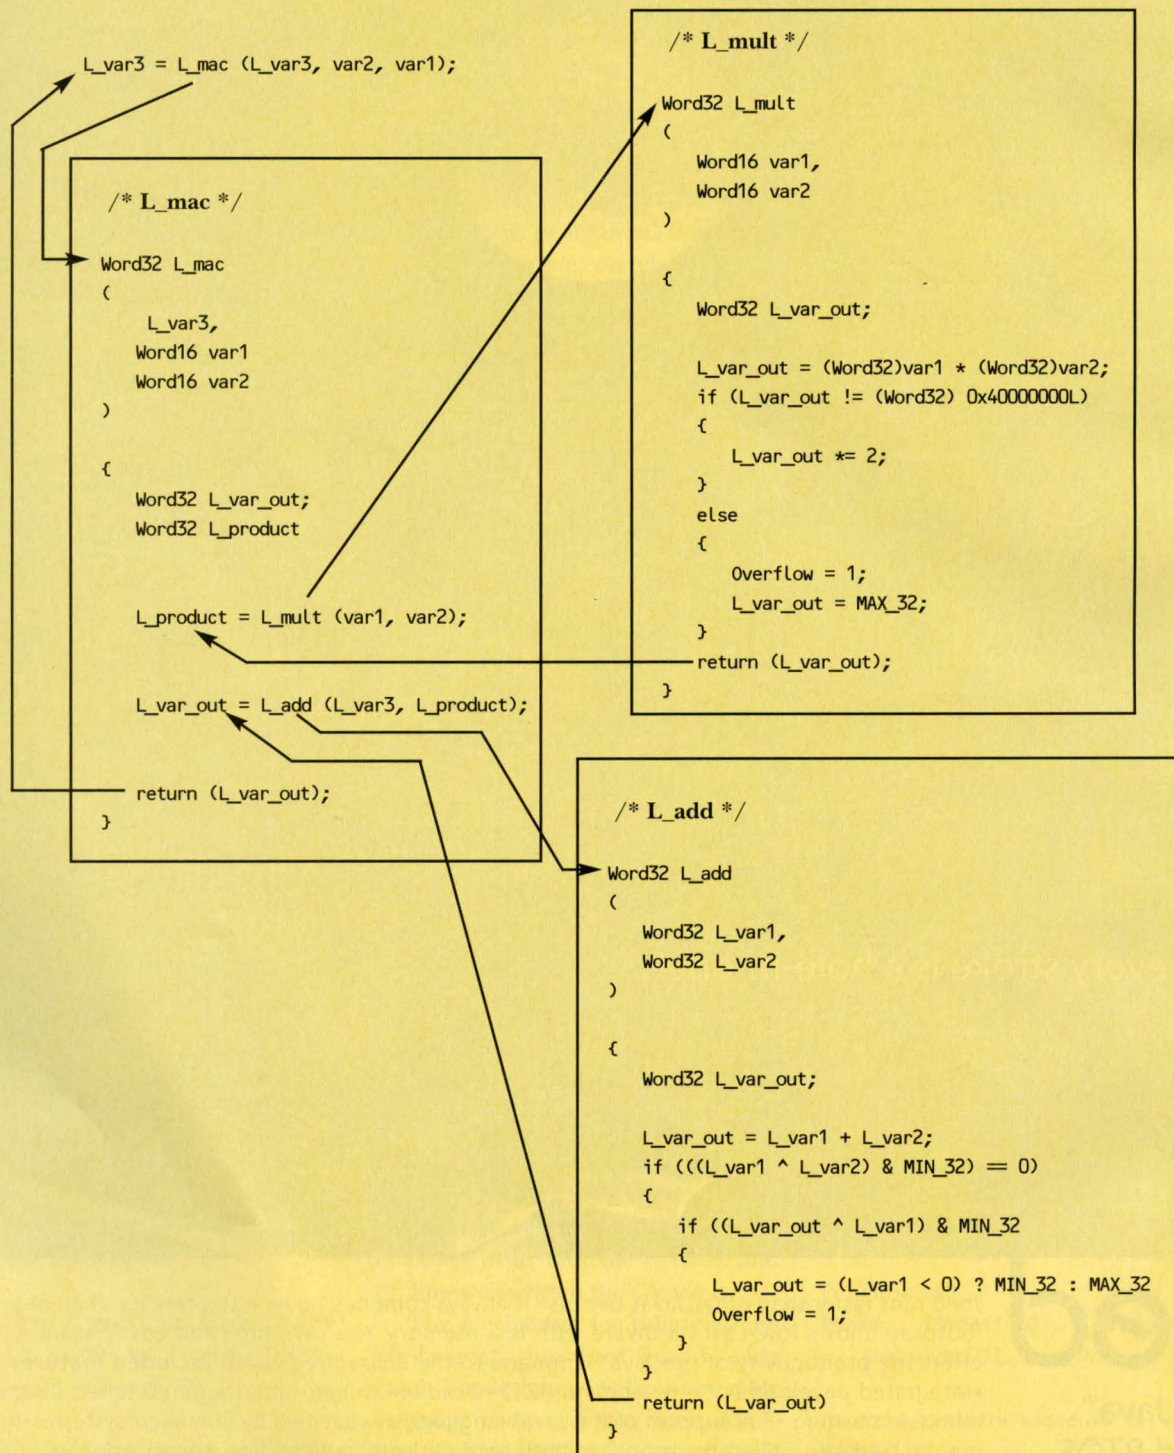 L_var3 = L_mac (L_var3, var2, var1);
/* L_mac */
Word32 L_mac
(
L_var3,
Word16 var1
Word16 var2
)
{
Word32 L_var_out;
Word32 L_product
L_product = L_mult (var1, var2);
L_var_out = L_add (L_var3, L_product);
return (L_var_out);
}
/* L_mult */
Word32 L_mult
(
Word16 var1,
Word16 var2
)
{
Word32 L_var_out;
L_var_out = (Word32)var1 * (Word32)var2;
if (L_var_out != (Word32) 0x40000000L)
{
L_var_out *= 2;
}
else
{
Overflow = 1;
L_var_out = MAX_32;
}
return (L_var_out);
}
/* L_add */
Word32 L_add
(
Word32 L_var1,
Word32 L_var2
)
{
Word32 L_var_out;
L_var_out = L_var1 + L_var2;
if (((L_var1 ^ L_var2) & MIN_32) == 0)
{
if ((L_var_out ^ L_var1) & MIN_32
{
L_var_out = (L_var1 < 0) ? MIN_32 : MAX_32
Overflow = 1;
}
}
return (L_var_out)
}